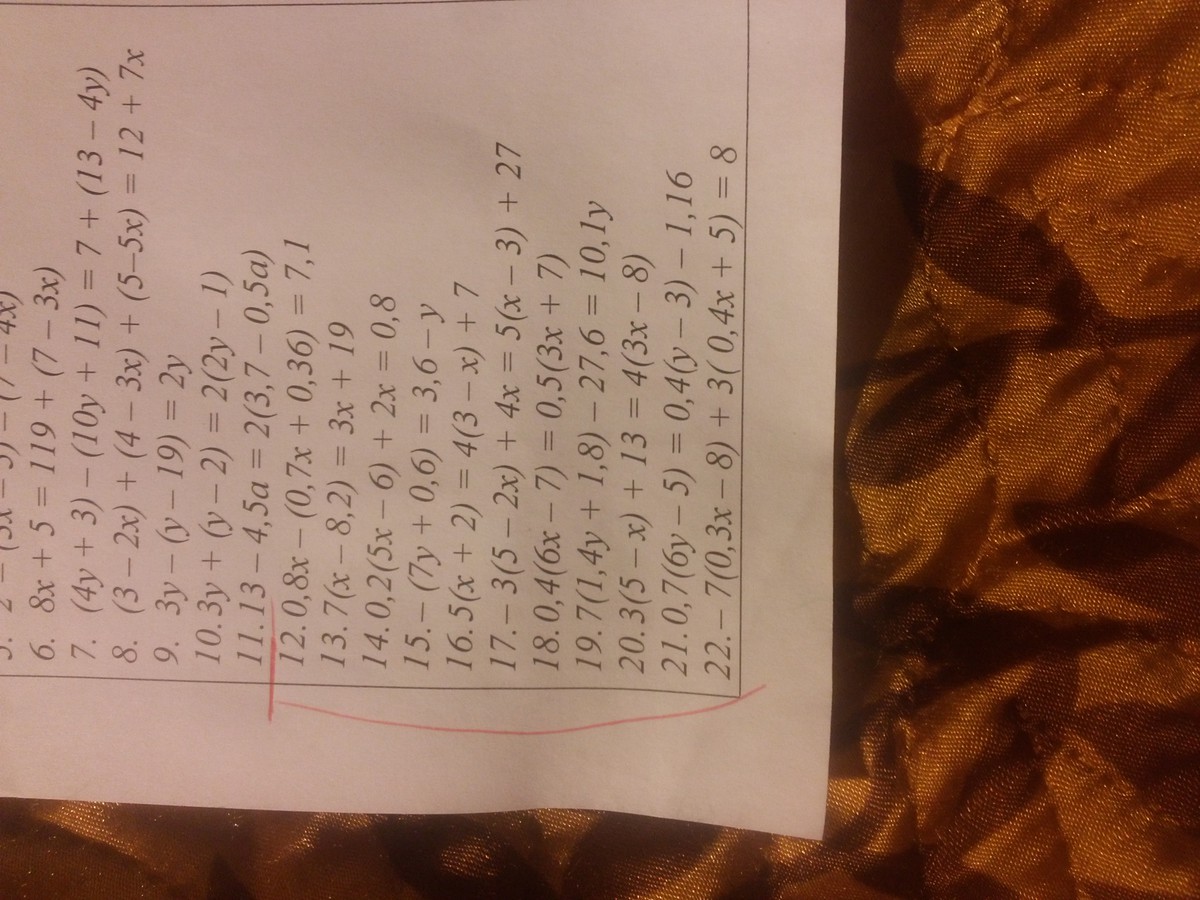 6. 8x + 5 = 119 + (7 – 3x)
7. (4y + 3) – (10y + 11) = 7 + (13 – 4y)
8. (3 – 2x) + (4 – 3x) + (5–5x) = 12 + 7x
9. 3y – (y – 19) = 2y
10. 3y + (y – 2) = 2(2y – 1)
11. 13 – 4,5a = 2(3,7 – 0,5a)
12. 0,8x – (0,7x + 0,36) = 7,1
13. 7(x – 8,2) = 3x + 19
14. 0,2(5x – 6) + 2x = 0,8
15. – (7y + 0,6) = 3,6 – y
16. 5(x + 2) = 4(3 – x) + 7
17. – 3(5 – 2x) + 4x = 5(x – 3) + 27
18. 0,4(6x – 7) = 0,5(3x + 7)
19. 7(1,4y + 1,8) – 27,6 = 10,1y
20. 3(5 – x) + 13 = 4(3x – 8)
21. 0,7(6y – 5) = 0,4(y – 3) – 1,16
22. – 7(0,3x – 8) + 3( 0,4x + 5) = 8